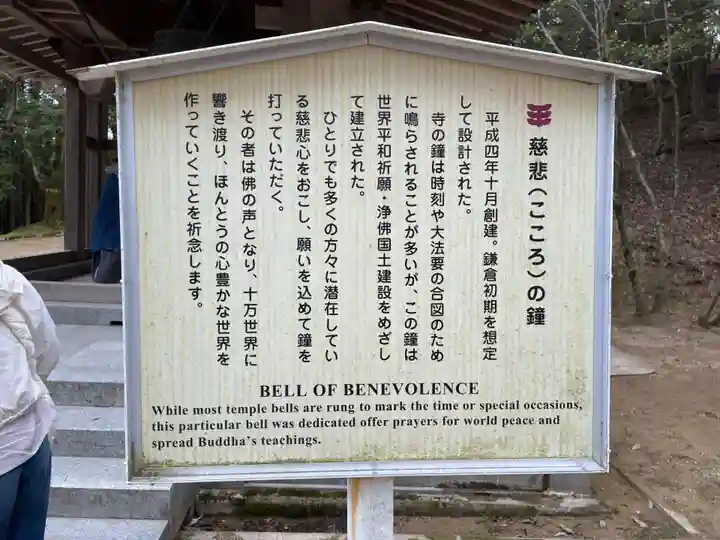 慈悲(こころ)の鐘
平成四年十月創建。鎌倉初期を想定
して設計された。
寺の鐘は時刻や大法要の合図のため
に鳴らされることが多いが、この鐘は
世界平和祈願・浄佛国土建設をめざし
て建立された。
ひとりでも多くの方々に潜在してい
る慈悲心をおこし、願いを込めて鐘を
打っていただく。
その者は佛の声となり、十万世界に
響き渡り、ほんとうの心豊かな世界を
作っていくことを祈念します。
BELL OF BENEVOLENCE
While most temple bells are rung to mark the time or special occasions,
this particular bell was dedicated offer prayers for world peace and
spread Buddha's teachings.